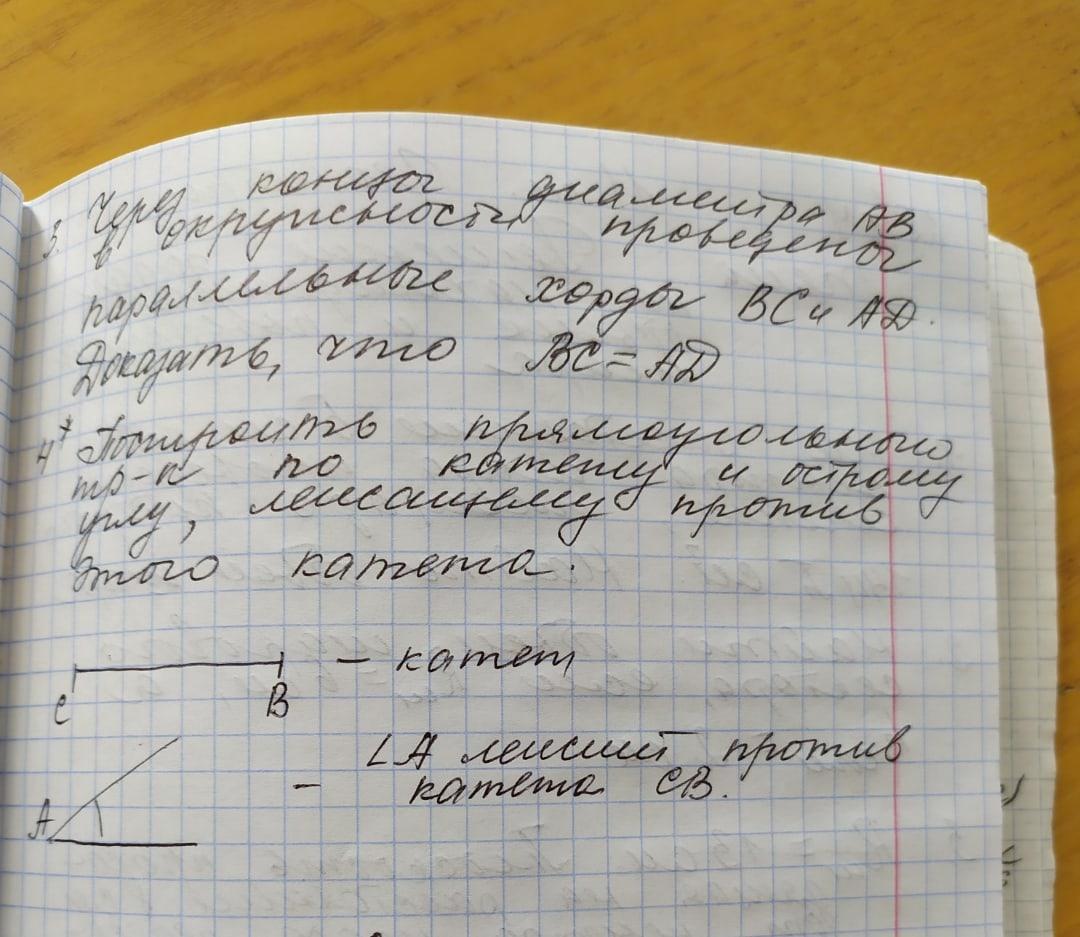 3. Через концы диаметра АВ
в окружности проведены
параллельные хорды ВС и АD.
Доказать, что ВС = АD
4* Построить прямоугольного
тр-к по катету и острому
углу, лежащему против
этого катета.
— катет
С В
∠А лежит против
А — катета СВ.